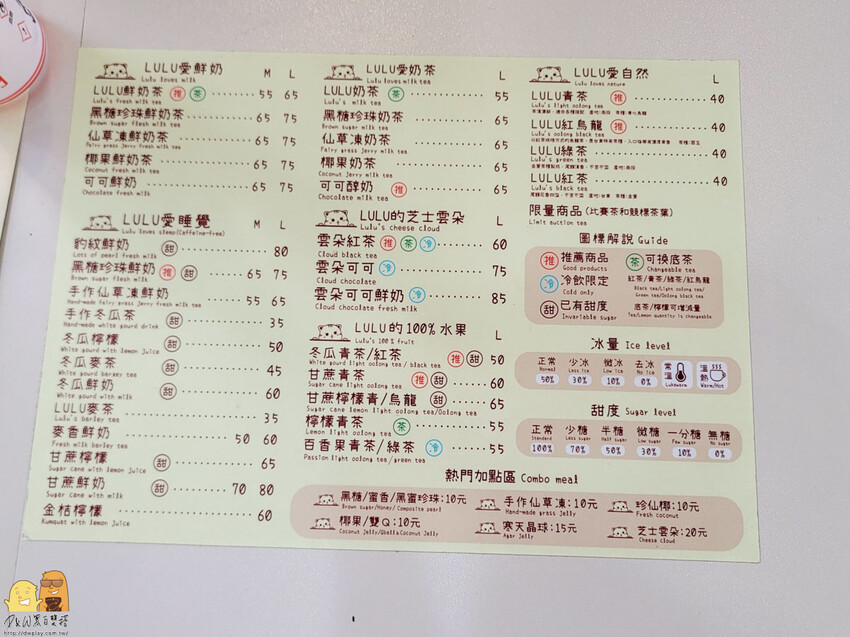 LULU愛鮮奶 M L
Lulu loves milk
LULU鮮奶茶 推 茶 55 65
Lulu's fresh milk tea
黑糖珍珠鮮奶茶 65 75
Brown sugar flesh milk tea
仙草凍鮮奶茶 65 75
Fairy press Jerry fresh milk tea
椰果鮮奶茶 65 75
Coconut fresh milk tea
可可鮮奶 65 75
Chocolate fresh milk
LULU愛睡覺 M L
Lulu loves sleep(Caffeine-free)
豹紋鮮奶 甜 80
Lots of pearl fresh milk
黑糖珍珠鮮奶 推 甜 65 75
Brown sugar flesh milk
手作仙草凍鮮奶 55 65
Hand-made fairy press Jerry fresh milk tea
手作冬瓜茶 甜 35
Hand-made white gourd drink
冬瓜檸檬 甜 50
White gourd with lemon juice
冬瓜麥茶 甜 45
White gourd barley tea
冬瓜鮮奶 甜 60
White gourd with milk
LULU麥茶 35
Lulu's barley tea
麥香鮮奶 50 60
Fresh milk barley tea
甘蔗檸檬 甜 65
Sugar cane with lemon juice
甘蔗鮮奶 甜 70 80
Sugar cane with milk
金桔檸檬 60
Kumquat with lemon juice
LULU愛奶茶 L
Lulu loves milk tea
LULU奶茶 茶 55
Lulu's milk tea
黑糖珍珠奶茶 65
Brown sugar milk tea
仙草凍奶茶 65
Fairy press Jerry milk tea
椰果奶茶 65
Coconut Jerry milk tea
可可醇奶 推 65
Chocolate milk tea
LULU的芝士雲朵 L
Lulu's cheese cloud
雲朵紅茶 推 茶 冷 60
Cloud black tea
雲朵可可 冷 75
Cloud chocolate
雲朵可可鮮奶 冷 85
Cloud chocolate fresh milk
LULU的100%水果 L
Lulu's 100% fruit
冬瓜青茶/紅茶 推 甜 50
White gourd light oolong tea/ black tea
甘蔗青茶 推 甜 60
Sugar cane light oolong tea
甘蔗檸檬青/烏龍 甜 65
Sugar cane lemon light oolong tea/Oolong tea
檸檬青茶 茶 55
Lemon light oolong tea
百香果青茶/綠茶 冷 55
Passion light oolong tea /green tea
LULU愛自然 L
Lulu loves nature
LULU青茶 推 40
Lulu's light oolong tea
LULU紅烏龍 推 40
Lulu's oolong black tea
LULU綠茶 40
Lulu's green tea
LULU紅茶 40
Lulu's black tea
限量商品(比賽茶和競標茶葉)
Limit auction tea
圖標解說 Guide
推 推薦商品
Good products
茶 可換底茶
Changeable tea
冷 冷飲限定
Cold only
紅茶/青茶/綠茶/紅烏龍
Black tea/Light oolong tea/
Green tea/Oolong black tea
甜 已有甜度
Invariable sugar
底茶/檸檬可增減量
Tea/Lemon quantity is changeable
冰量 Ice level
正常 少冰 微冰 去冰 常溫 溫熱
Normal Less ice Low ice No ice Lukewarm Warm/Hot
50% 30% 10% 0%
甜度 Sugar level
正常 少糖 半糖 微糖 一分糖 無糖
Standard Less sugar Half sugar Low sugar Few sugar No sugar
100% 70% 50% 30% 10% 0%
熱門加點區 Combo meal
黑糖/蜜香/黑蜜珍珠:10元 手作仙草凍:10元 珍仙椰:10元
Brown sugar/Honey/ Composite pearl Hand-made grass Jelly Fresh coconut
椰果/雙Q:10元 寒天晶球:15元 芝士雲朵:20元
Agar Jelly Cheese cloud
http://dwplay.com.tw/